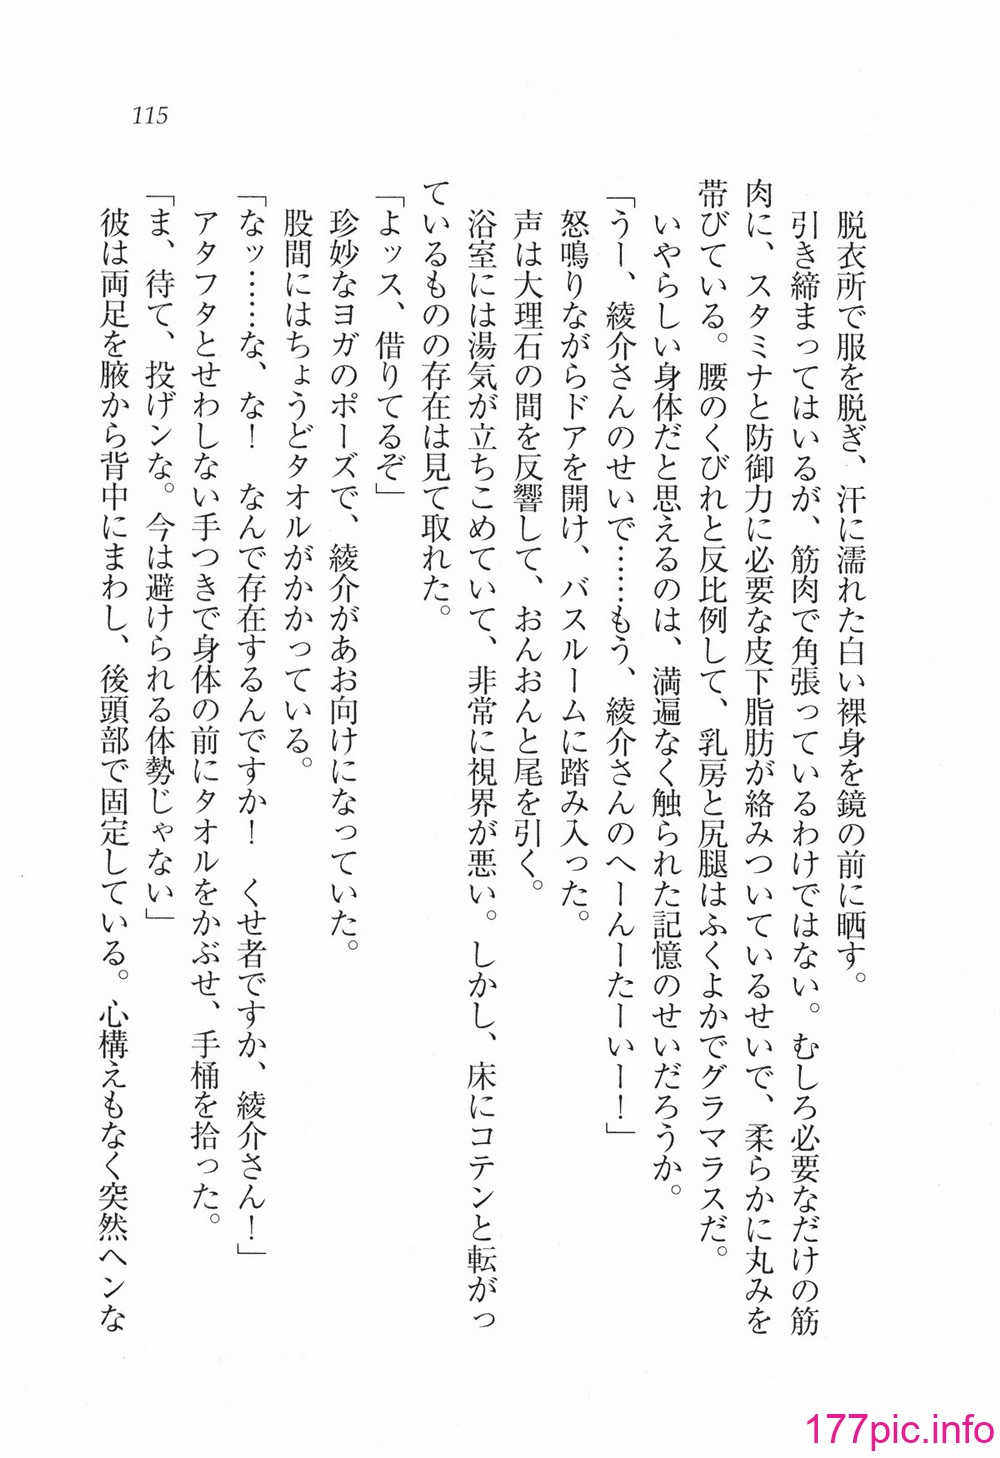 115
脱衣所で服を脱ぎ、汗に濡れた白い裸身を鏡の前に晒す。
引き締まってはいるが、筋肉で角張っているわけではない。むしろ必要なだけの筋
肉に、スタミナと防御力に必要な皮下脂肪が絡みついているせいで、柔らかに丸みを
帯びている。腰のくびれと反比例して、乳房と尻腿はふくよかでグラマラスだ。
いやらしい身体だと思えるのは、満遍なく触られた記憶のせいだろうか。
「うー、綾介さんのせいで……もう、綾介さんのへーんーたーいー！」
怒鳴りながらドアを開け、バスルームに踏み入った。
声は大理石の間を反響して、おんおんと尾を引く。
浴室には湯気が立ちこめていて、非常に視界が悪い。しかし、床にコテンと転がっ
ているものの存在は見て取れた。
「よッス、借りてるぞ」
珍妙なヨガのポーズで、綾介があお向けになっていた。
股間にはちょうどタオルがかかっている。
「なッ……な、な！　なんで存在するんですか！　くせ者ですか、綾介さん！」
アタフタとせわしない手つきで身体の前にタオルをかぶせ、手桶を拾った。
「ま、待て、投げンな。今は避けられる体勢じゃない」
彼は両足を腋から背中にまわし、後頭部で固定している。心構えもなく突然ヘンな
177pic.info